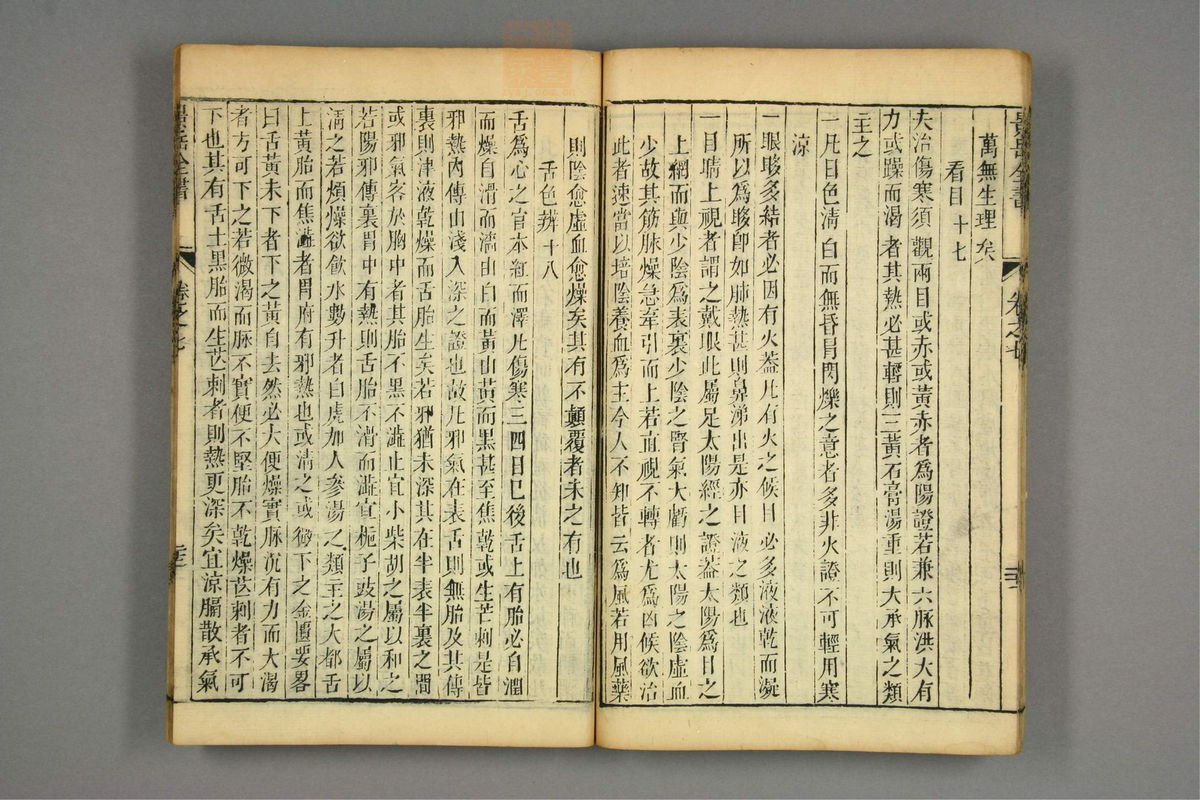 景岳全書 卷之七
萬無生理矣
看目 十七
夫治傷寒須觀兩目或赤或黃赤者爲陽證若兼六脉洪大有
力或躁而渴者其熱必甚輕則三黃石膏湯重則大承氣之類
主之
一凡目色清白而無昏冒閃爍之意者多非火證不可輕用寒
涼
一眼眵多結者必因有火葢凡有火之候目必多液液乾而凝
所以爲眵卽如肺熱甚則鼻涕出是亦目液之類也
一目睛上視者謂之戴眼此屬足太陽經之證葢太陽爲目之
上網而與少陰爲表裏少陰之腎氣大虧則太陽之陰虛血
少故其筋脉燥急牽引而上若直視不轉者尤爲凶候欲治
此者速當以培陰養血爲主今人不知皆云爲風若用風藥
則陰愈虛血愈燥矣其有不顛覆者未之有也
舌色辨 十八
舌爲心之官本紅而澤凡傷寒三四日已後舌上有胎必自潤
而燥自滑而濇由白而黃由黃而黑甚至焦乾或生芒刺是皆
邪熱內傳由淺入深之證也故凡邪氣在表舌則無胎及其傳
裏則津液乾燥而舌胎生矣若邪猶未深其在半表半裏之間
或邪氣客於胸中者其胎不黑不澁止宜小柴胡之屬以和之
若陽邪傳裏胃中有熱則舌胎不滑而澁宜梔子豉湯之屬以
清之若煩燥欲飮水數升者白虎加人參湯之類主之大都舌
上黃胎而焦澁者胃府有邪熱也或清之或微下之金匱要畧
曰舌黃未下者下之黃自去然必大便燥實脉沉有力而大渴
者方可下之若微渴而脉不實便不堅胎不乾燥芒刺者不可
下也其有舌上黑胎而生芒刺者則熱更深矣宜涼膈散承氣